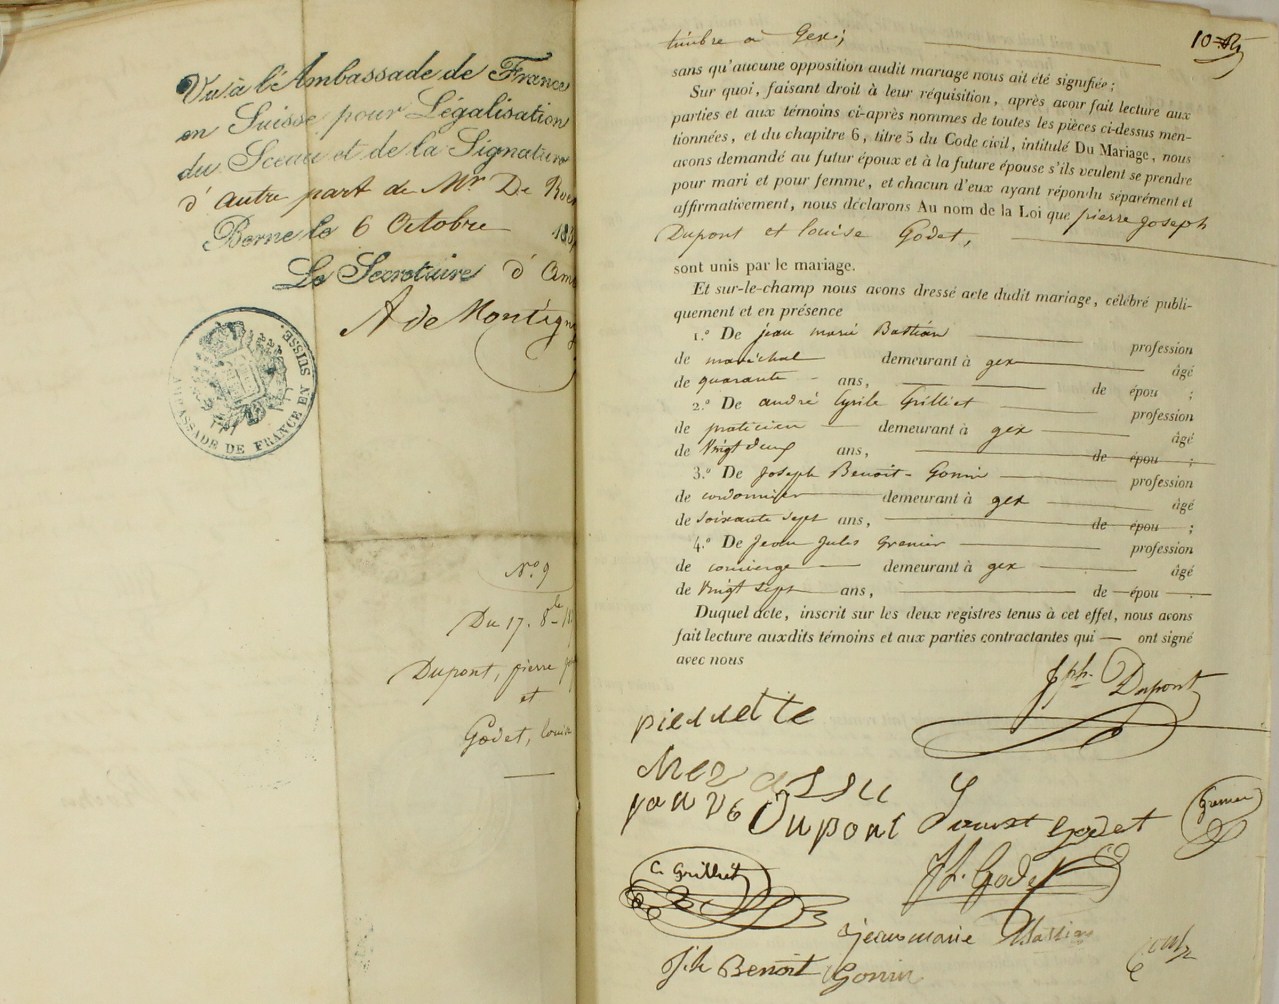 Vu à l'Ambassade de France
en Suisse pour Légalisation
du Sceau et de la Signature
d'autre part de Mr De
Berne le 6 Octobre 18
Le Secretaire d'
A de Montigny
AMBASSADE DE FRANCE EN SUISSE.
N.o 9
Du 17. 8
Dupont, pierre
et
Godet, louise
10
timbre à Gex;
sans qu'aucune opposition audit mariage nous ait été signifiée;
Sur quoi, faisant droit à leur réquisition, après avoir fait lecture aux
parties et aux témoins ci-après nommes de toutes les pièces ci-dessus men-
tionnées, et du chapitre 6, titre 5 du Code civil, intitulé Du Mariage, nous
avons demandé au futur époux et à la future épouse s'ils veulent se prendre
pour mari et pour femme, et chacun d'eux ayant répondu séparément et
affirmativement, nous déclarons Au nom de la Loi que pierre joseph
Dupont et louise Godet,
sont unis par le mariage.
Et sur-le-champ nous avons dressé acte dudit mariage, célébré publi-
quement et en présence
1.o De jean marie Bastian profession
de maréchal demeurant à gex âgé
de quarante ans, de épou ;
2.o De andré Cyrile Grilliet profession
de praticien demeurant à gex âgé
de vingt deux ans, de épou ;
3.o De Joseph Benoit-Gonin profession
de cordonnier demeurant à gex âgé
de soixante sept ans, de épou ;
4.o De Jean Jules Grenier profession
de concierge demeurant à gex âgé
de vingt sept ans, de épou
Duquel acte, inscrit sur les deux registres tenus à cet effet, nous avons
fait lecture auxdits témoins et aux parties contractantes qui ont signé
avec nous
Jph. Dupont
pierrette
Dupont Godet
C. Grilliet
Godet
jean marie Bastian
Benoit Gonin